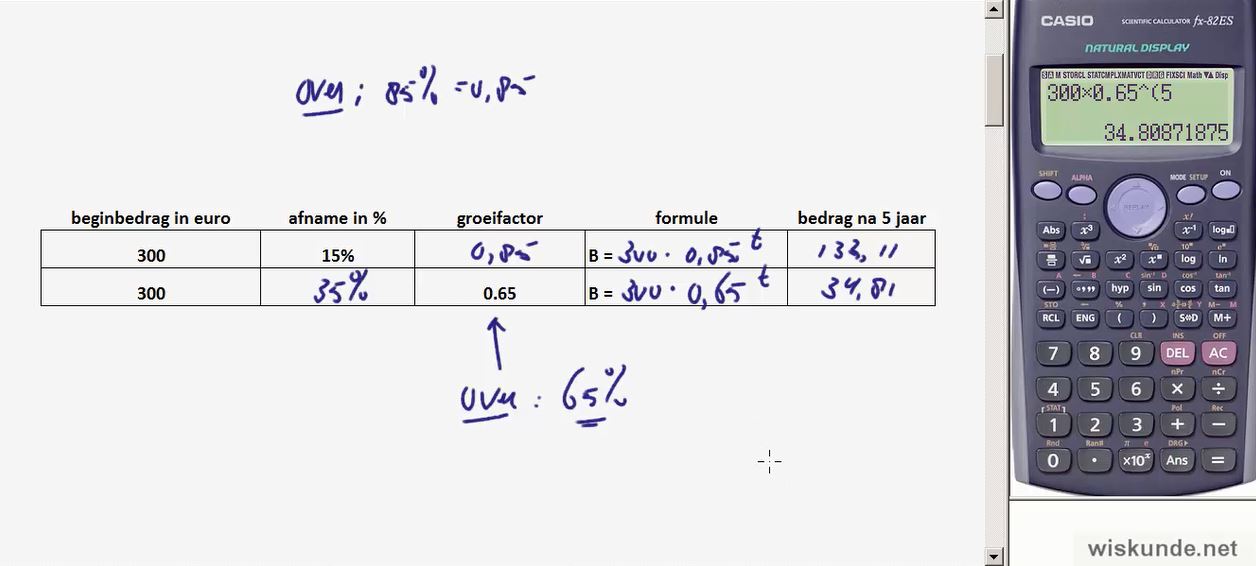 over; 85% = 0,85
beginbedrag in euro afname in % groeifactor formule bedrag na 5 jaar
300 15% 0,85 B = 300 · 0,85^t 133,11
300 35% 0.65 B = 300 · 0,65^t 34,81
over : 65%
CASIO SCIENTIFIC CALCULATOR fx-82ES
NATURAL DISPLAY
300×0.65^(5
34.80871875
SHIFT ALPHA REPLAY MODE SETUP ON
Abs x³ x⁻¹ log
√ x² log ln
(−) hyp sin cos tan
STO
RCL ENG ( ) S⇔D M+
CLR INS OFF
7 8 9 DEL AC
nPr nCr
4 5 6 × ÷
[STAT] Pol Rec
1 2 3 + −
Rnd Ran# π e DRG▶
0 · ×10ˣ Ans =
wiskunde.net